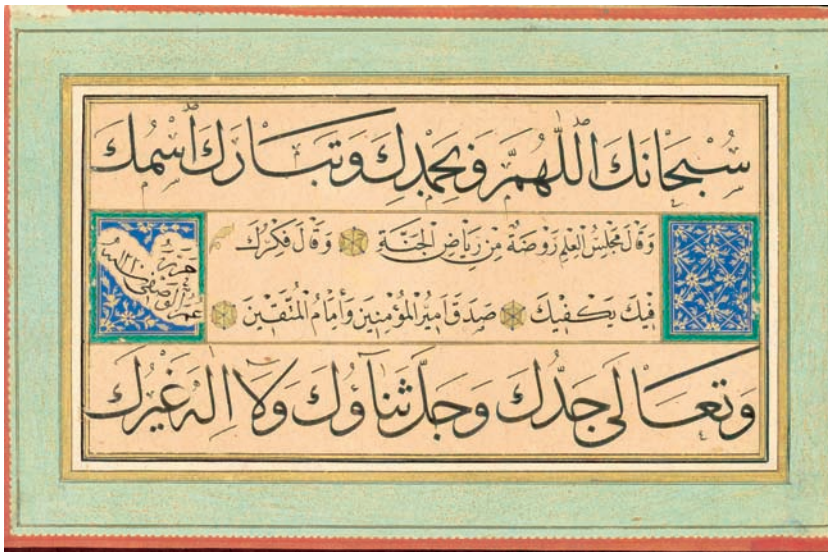 سُبْحَانَكَ اللّٰهُمَّ وَبِحَمْدِكَ وَتَبَارَكَ اسْمُكَ
وَقَالَ مَجْلِسُ الْعِلْمِ رَوْضَةٌ مِنْ رِيَاضِ الْجَنَّةِ وَقَالَ فِكْرُكَ
فِيكَ يَكْفِيكَ صَدَقَ اَمِيرُ الْمُؤْمِنِينَ وَاِمَامُ الْمُتَّقِينَ
حرره
عمر الوصفي
١٢٢٠
وَتَعَالَى جَدُّكَ وَجَلَّ ثَنَاؤُكَ وَلَا اِلٰهَ غَيْرُكَ